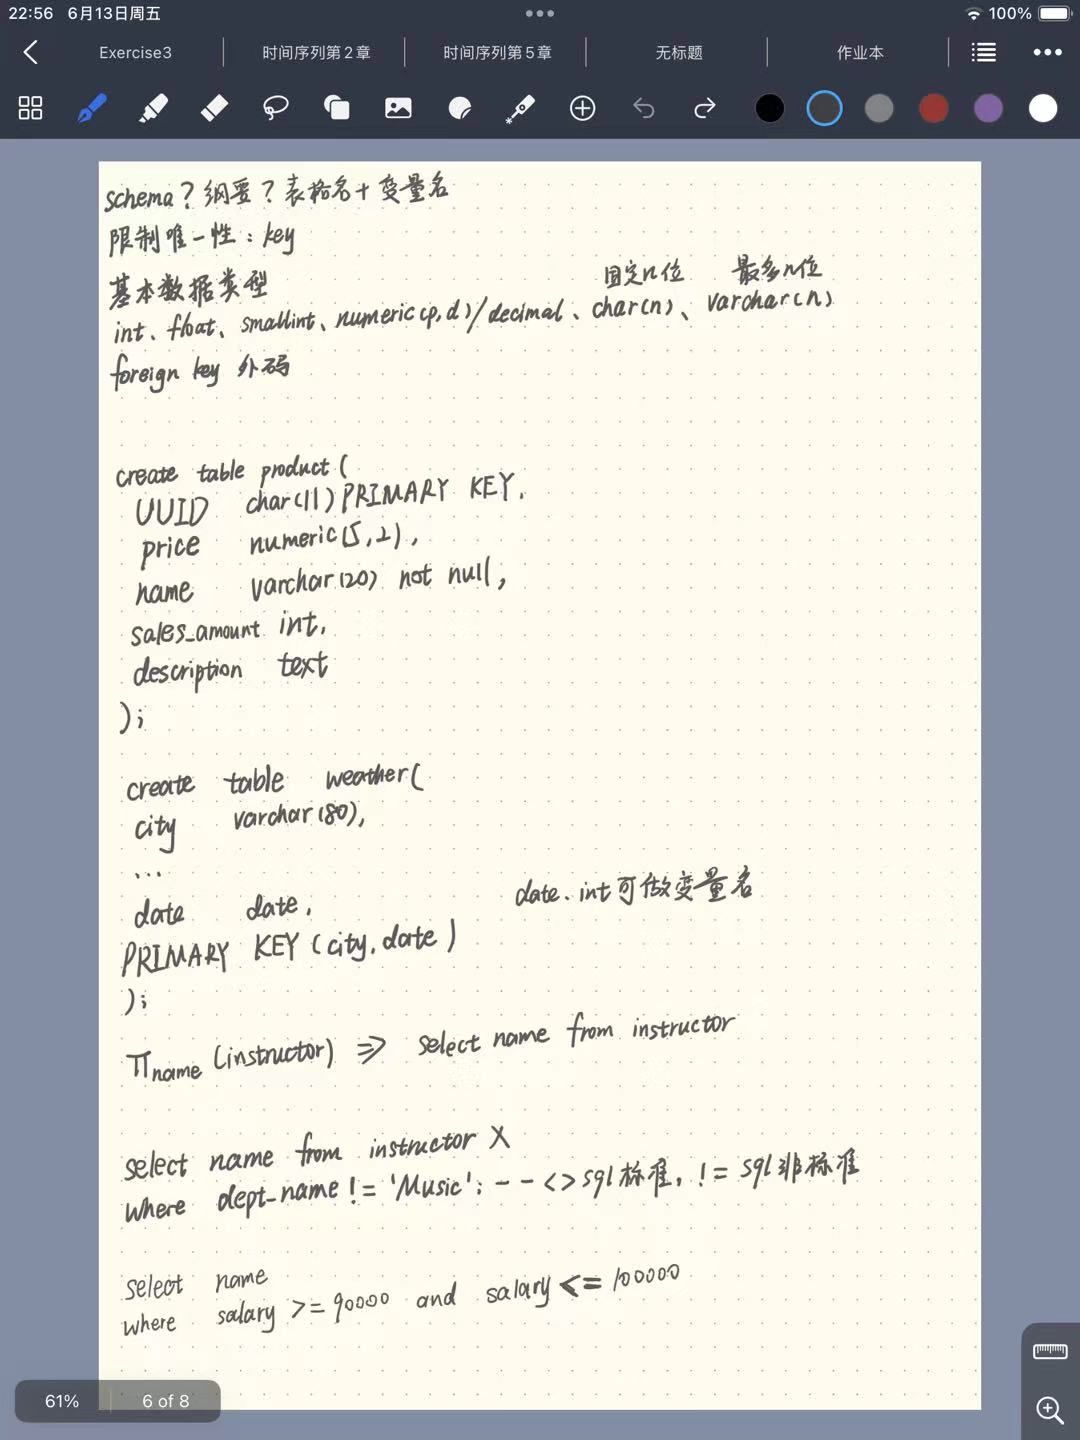 22:56 6月13日周五
100%
Exercise3 时间序列第2章 时间序列第5章 无标题 作业本
schema？纲要？表格名+变量名
限制唯一性：key
基本数据类型
固定n位 最多n位
int、float、smallint、numeric(p,d)/decimal、char(n)、varchar(n)
foreign key 外码
create table product(
UUID char(11) PRIMARY KEY,
price numeric(5,2),
name varchar(20) not null,
sales_amount int,
description text
);
create table weather(
city varchar(80),
...
date date,
date、int可做变量名
PRIMARY KEY (city,date)
);
π name (instructor) => select name from instructor
select name from instructor X
where dept-name != 'Music'; -- <> sql标准, != sql非标准
select name
where salary >= 90000 and salary <= 100000
61% 6 of 8